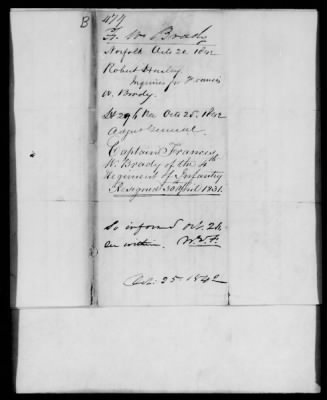 B
474
F. W. Brady
Norfolk Octo 20 1842
Robert
Inquires for Francis
W. Brady.
Octo 25, 1842
Adjut General
Captain Francis
W. Brady of the 4th
Regiment of Infantry
Resigned 30 April 1831.
So informed Oct. 26
as within.
Oct: 25. 1842